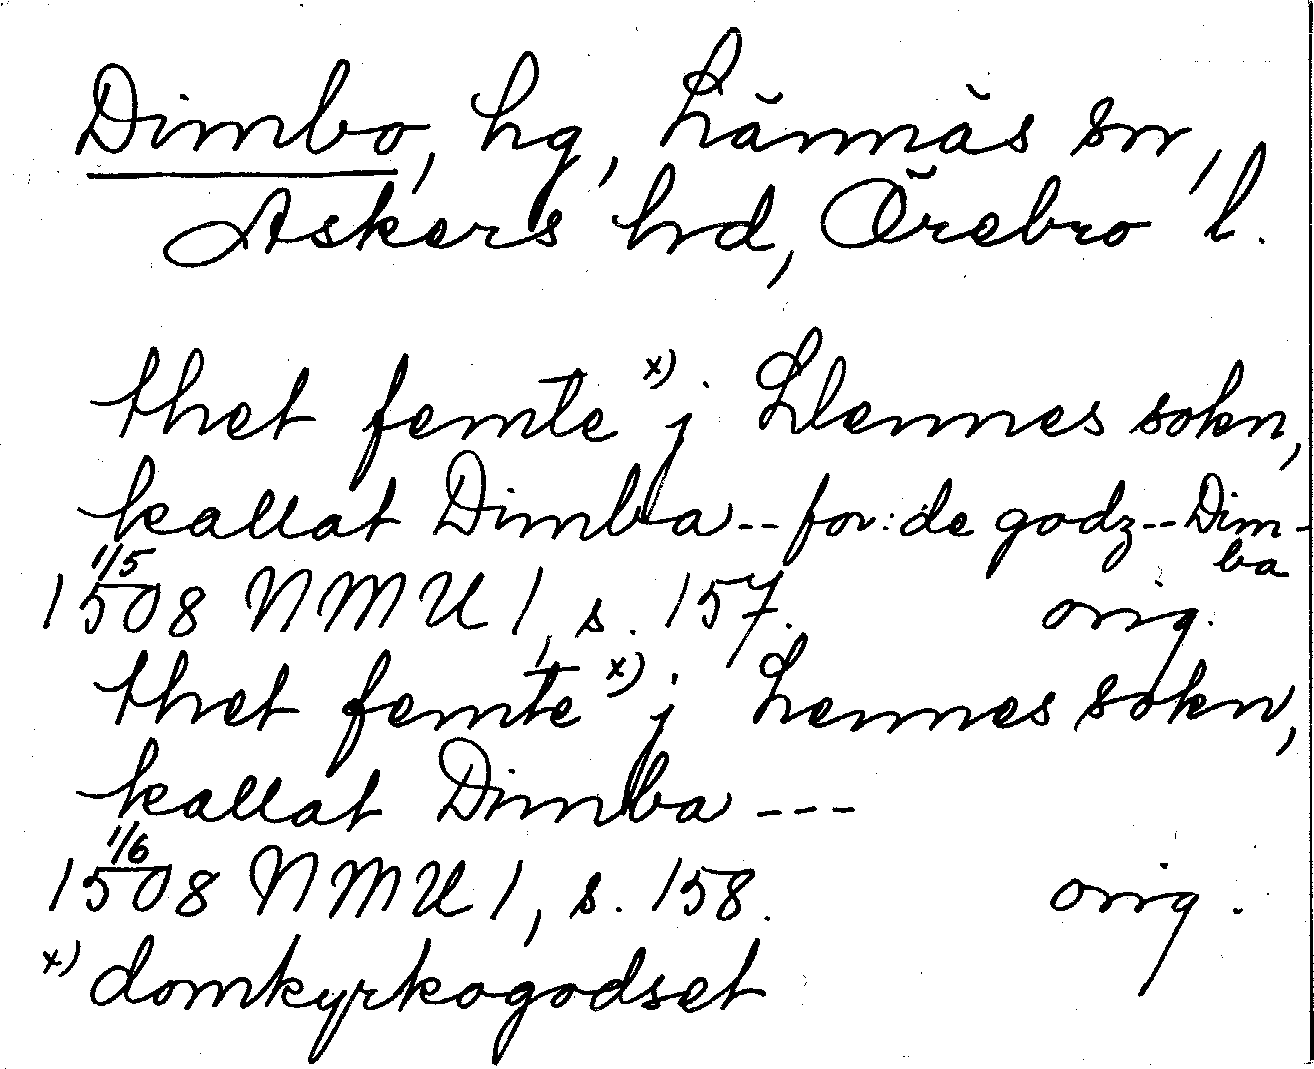 Dimbo, hg, Lännäs sn,
Askers hd, Örebro l.
thet femte x) j Llennes sokn,
kallat Dimba -- for:de godz -- Dim-
ba
1508 1/5 NMU 1, s. 157. orig.
thet femte x) j Lennes sokn,
kallat Dimba ---
1508 1/6 NMU 1, s. 158. orig.
x) domkyrkogodset